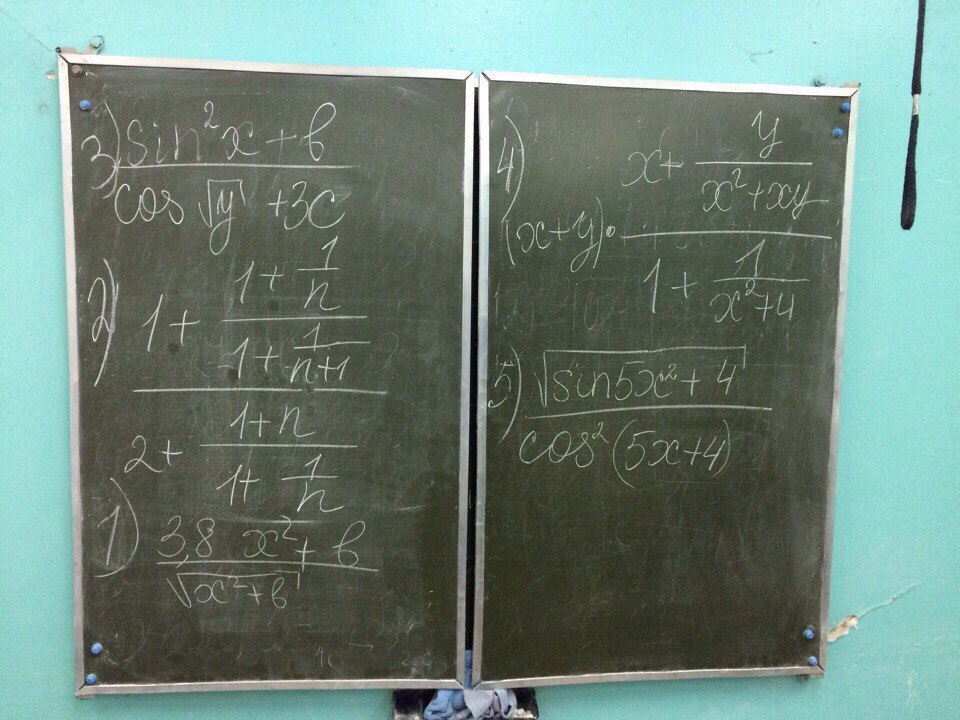 3) sin²x + b
cos √y + 3c
2) 1 + (1 + 1/n)/(1 + 1/(n+1))
2 + (1+n)/(1 + 1/n)
1) 3,8 x² + b
√(x² + b)
4) x + y/(x² + xy)
(x+y)·
1 + 1/(x² + 4)
5) √(sin5x² + 4)
cos²(5x+4)